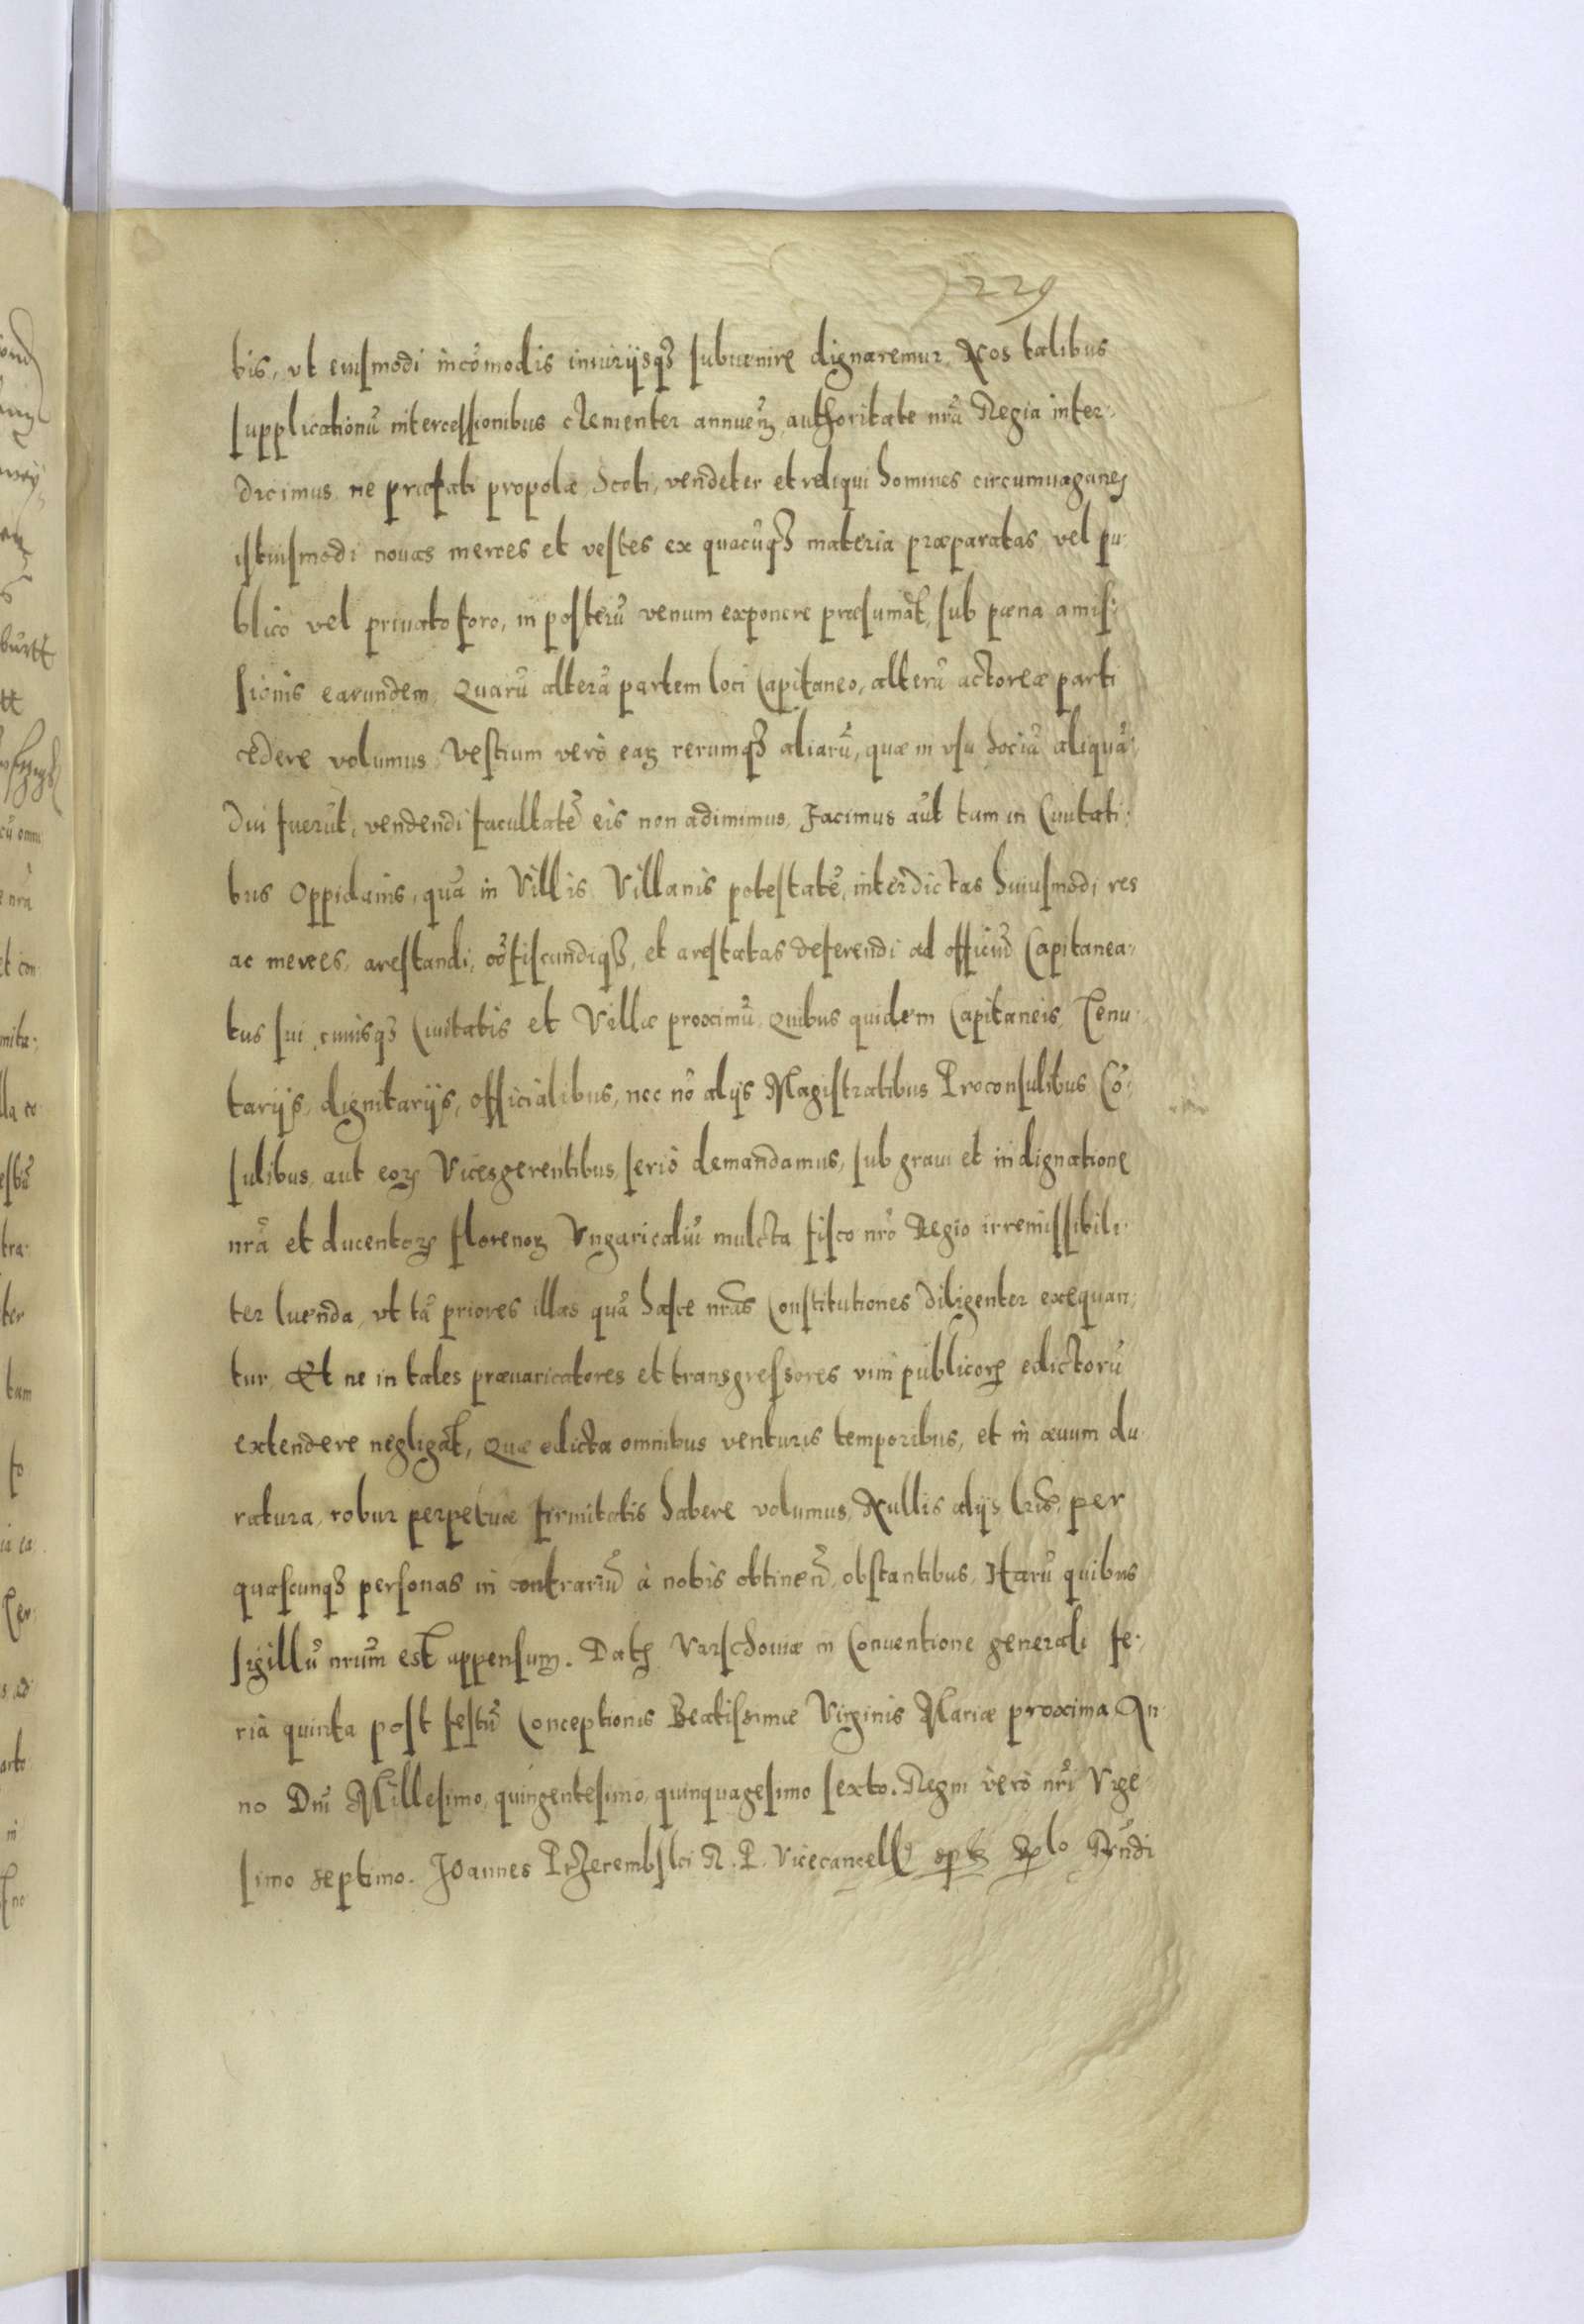 229
bis, vt eiusmodi incõmodis iniurijsqꝫ subuenire dignaremur, Nos talibus
supplicationũ intercessionibus clementer annueñ, authoritate nrã Regia inter:
dicimus, ne praefati propolae, Scoti, vendeter et reliqui homines circumuaganes
istiusmodi nouas merces et vestes ex quacũqꝫ materia praeparatas, vel pu:
blico vel priuato foro, in posterũ venum exponere praesumãt, sub paena amis:
sionis earundem, Quarũ alterã partem loci Capitaneo, alterũ actoreae parti
cedere volumus, Vestium verò eaꝝ rerumqꝫ aliarũ, quae in vsu hociũ aliquã:
diu fuerũt, vendendi facultatẽ eis non adimimus, Facimus aũt tam in Ciuitati:
bus Oppidanis, quã in Villis Villanis potestatẽ, interdictas huiusmodi res
ac merces, arestandi, cõfiscandiqꝫ, et arestatas deferendi ad officiũ Capitanea:
tus sui, cuiusqꝫ Ciuitatis et Villae proximũ, Quibus quidem Capitaneis, Tenu:
tarijs, dignitarijs, officialibus, nec nõ alijs Magistratibus Proconsulibus Cõ:
sulibus, aut eoꝝ Vicesgerentibus, seriò demandamus, sub graui et indignatione
nrã et ducentoꝝ florenoꝝ Vngaricaliũ mulcta fisco nrõ Regio irremissibili:
ter luenda, vt tã priores illas quã hasce nras Constitutiones diligenter exequan:
tur, Et ne in tales praeuaricatores et transgressores vim publicoꝝ edictorũ
extendere negligãt, Quae edicta omnibus venturis temporibus, et in aeuum du:
ratura, robur perpetuae firmitatis habere volumus, Nullis alijs lris, per
quascunqꝫ personas in contrariũ à nobis obtineñ, obstantibus, Harũ quibus
sigillũ nrum est appensum. Datꝭ Varschouiae in Conuentione generali fe:
ria quinta post festũ Conceptionis Beatissimae Virginis Mariae proxima An:
no Dni Millesimo, quingentesimo, quinquagesimo sexto. Regni verò nri Vige:
simo septimo. Joannes Przerembski R. P. Vicecancell